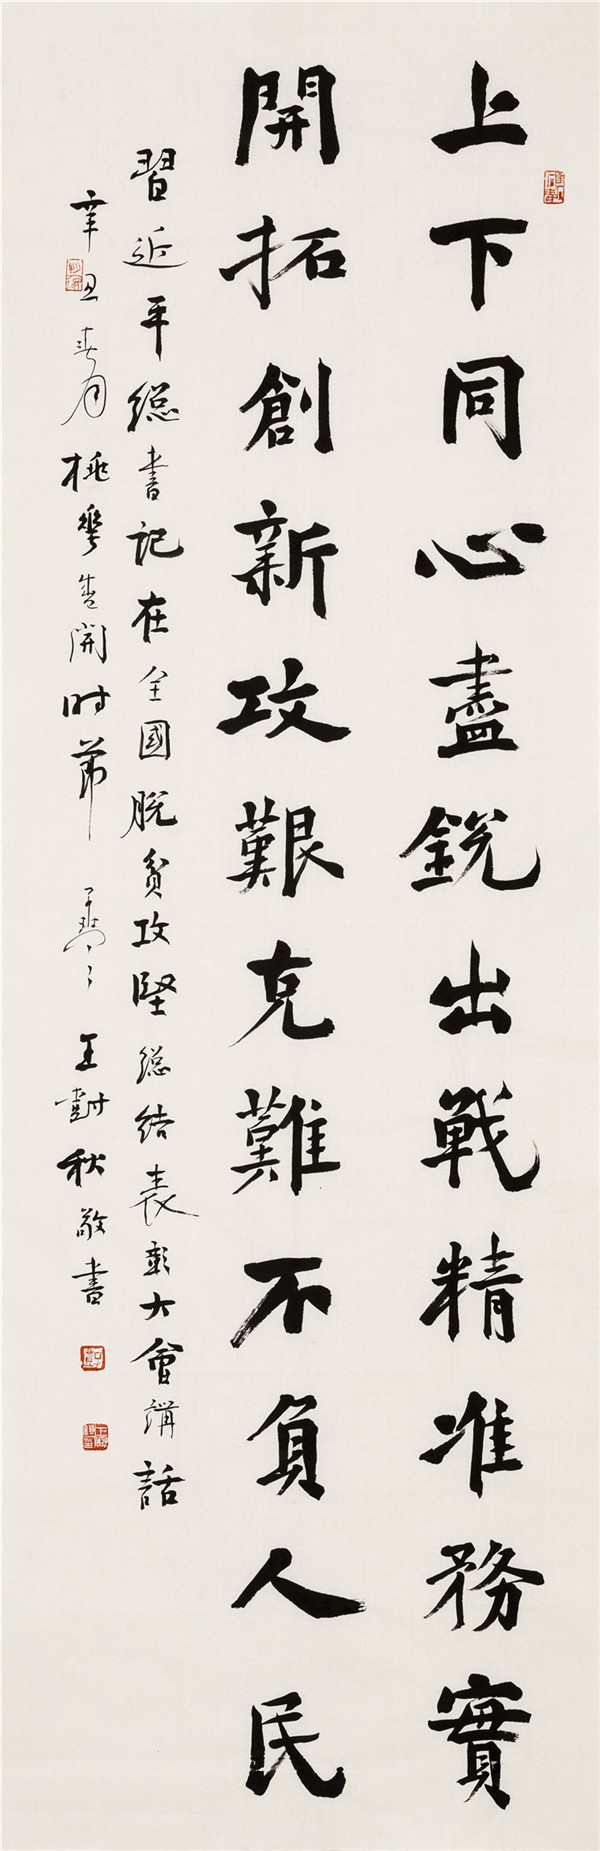 上下同心盡銳出戰精准務實
開拓創新攻艱克難不負人民
習近平總書記在全國脫貧攻堅總結表彰大會講話
辛丑春月桃華盛開時節 王對秋敬書